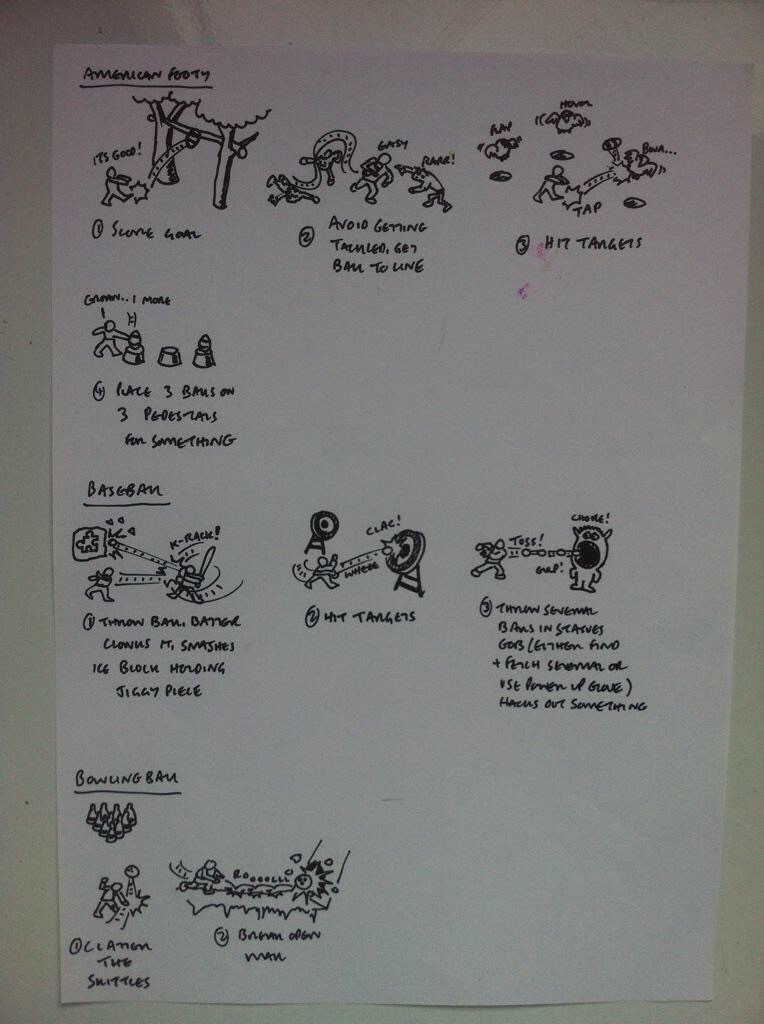 AMERICAN FOOTY
IT'S GOOD!
① SCORE GOAL
EASY
RARR!
② AVOID GETTING
TACKLED, GET
BALL TO LINE
FLAP
HOVER
TAP
③ HIT TARGETS
GROAN.. 1 MORE
④ PLACE 3 BALLS ON
3 PEDESTALS
FOR SOMETHING
BASEBALL
K-RACK!
① THROW BALL. BATTER
CLONKS IT, SMASHES
ICE BLOCK HOLDING
JIGGY PIECE
CLAC!
WHEEE
② HIT TARGETS
TOSS!
CHOKE!
GULP!
③ THROW SEVERAL
BALLS IN STATUES
GOB (EITHER FIND
+ FETCH SEVERAL OR
USE POWER UP GLOVE)
HACKS OUT SOMETHING
BOWLING BALL
① CLATTER
THE
SKITTLES
ROOOOLLL
② BREAK OPEN
WALL